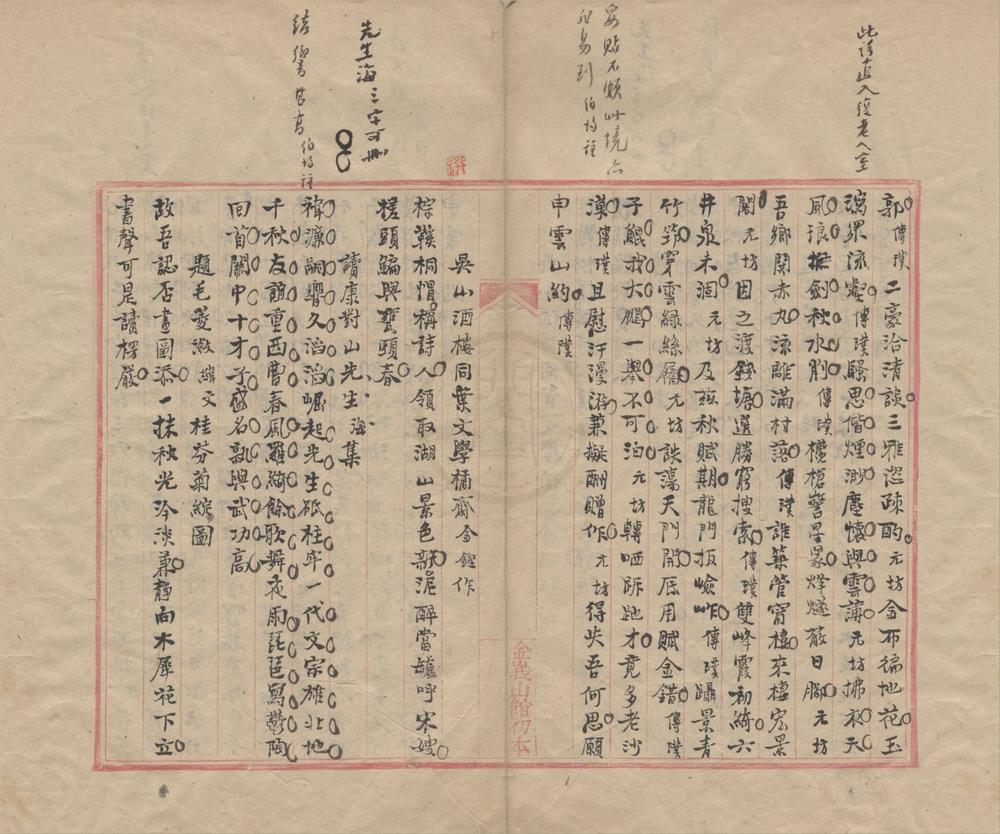 此詩直入復老人室
妥貼不頗此境亦
非易到 伯均註
郭傳璞二豪洽清談三雅恣疎酌元坊金布徧地花玉
漓眾流壑傳璞騷思偕煙渺塵懷與雲薄元坊拂衣天
風琅撫劍秋水削傳璞欃槍警星彖烽燧蔽日腳元坊
吾鄉関赤丸流離滿村落傳璞誰築管甯樓來棲宏景
閣元坊因之渡錢塘選勝窮搜索傳璞雙峰霞初綺六
井泉未涸元坊及兹秋賦期龍門扳嶮岞傳璞躡景青
竹筇穿雲綠絲屩元坊詄蕩天門開底用賦金錯傳璞
子鯤我大鵬一舉不可泊元坊轉哂跅弛才竟多老沙
漠傳璞且慰汗漫游兼擬酬贈作元坊得失吾何思願
申雲山約傳璞
先生海三字可刪
結響甚高 伯均註
吳山酒樓同葉文學橘齋金鏗作
棕鞵桐帽稱詩人領取湖山景色新泥醉當罏呼宋嫂
槎頭鯿與甕頭春
讀康對山先生海集
褘濂嗣響久滔滔崛起先生砥柱牢一代文宗雄北地
千秋友誼重西曹春風羅綺餘歌舞夜雨琵琶寫鬱陶
回首關中十才子盛名孰與武功高
題毛愛緻文桂芬菊綻圖
故吾認否畫圖添一抹秋光冷淡兼靜向木犀花下立
書聲可是讀楞嚴
金峩山館初本